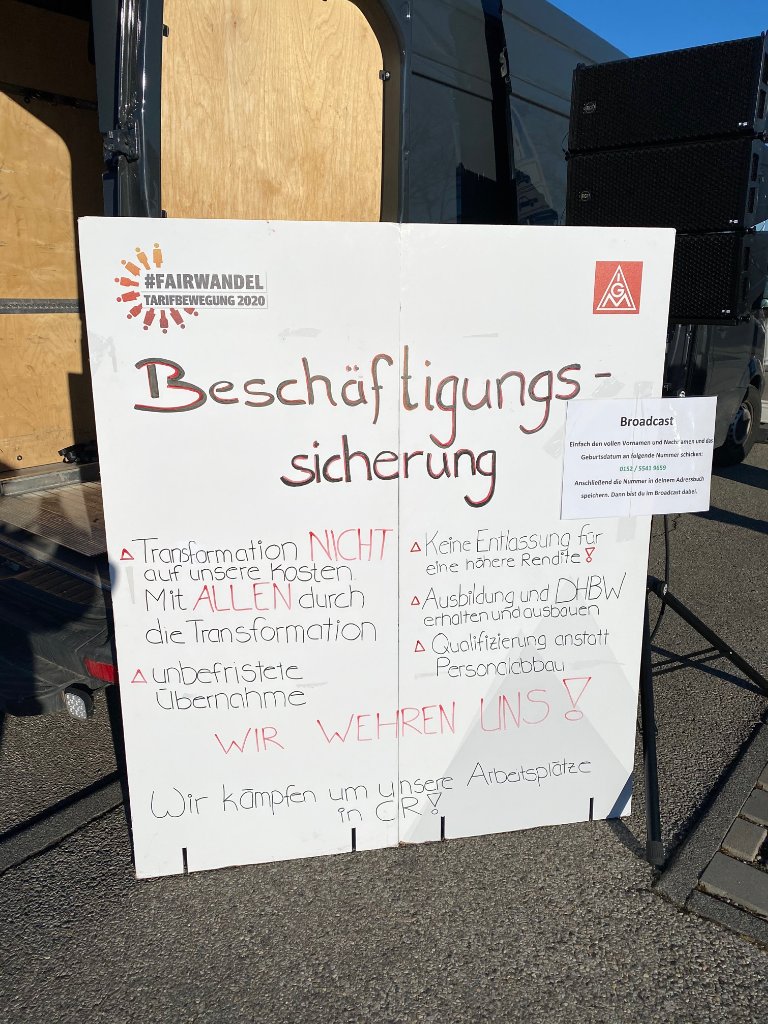 #FAIRWANDEL
TARIFBEWEGUNG 2020
IGM
Beschäftigungs-
sicherung
Broadcast
Einfach den vollen Vornamen und Nachnamen und das
Geburtsdatum an folgende Nummer schicken:
0152 / 5541 9659
Anschließend die Nummer in deinem Adressbuch
speichern. Dann bist du im Broadcast dabei.
Transformation NICHT
auf unsere Kosten.
Mit ALLEN durch
die Transformation
unbefristete
Übernahme
Keine Entlassung für
eine höhere Rendite!
Ausbildung und DHBW
erhalten und ausbauen
Qualifizierung anstatt
Personalabbau
WIR WEHREN UNS!
Wir kämpfen um unsere Arbeitsplätze
in CR!